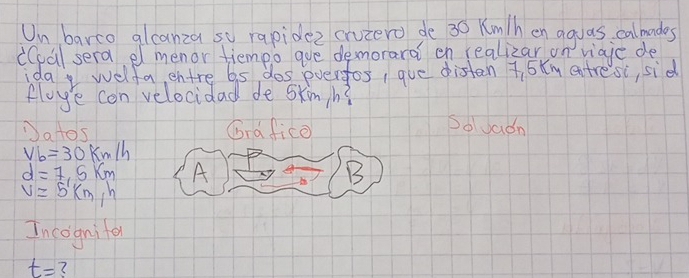 Un barco alcanza su rapidez cruzero de 30 Km/h en aguas calmadas
¿Cuál sera el menor tiempo que demorará en realizar un viaje de
ida y vuelta entre los dos puertos, que distan 7,5Km entresi, si el
fluye con velocidad de 5Km,h?
Datos Gráfico Solución
Vb=30Km/h
d=7,5Km
V=5Km,h
A B
Incognita
t=?